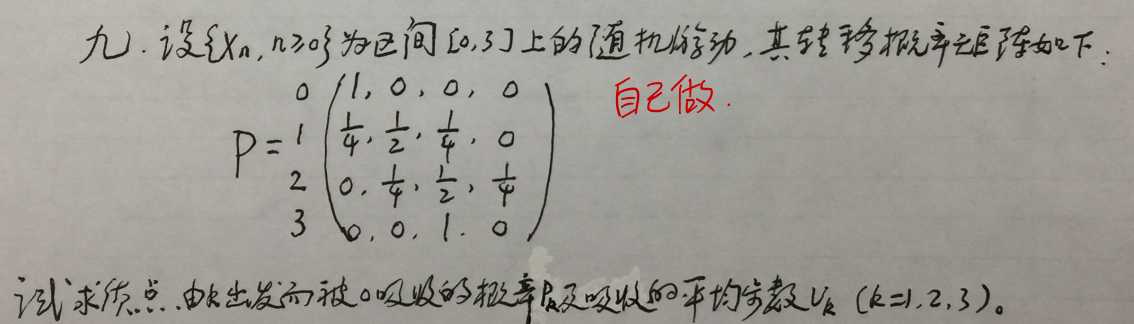 九.设{Xn,n≥0}为区间[0,3]上的随机游动,其转移概率矩阵如下:
自己做.
0 1, 0, 0, 0
P= 1 1/4, 1/2, 1/4, 0
2 0, 1/4, 1/2, 1/4
3 0, 0, 1. 0
试求质点由k出发而被0吸收的概率Pk及吸收的平均步数Vk (k=1,2,3)。